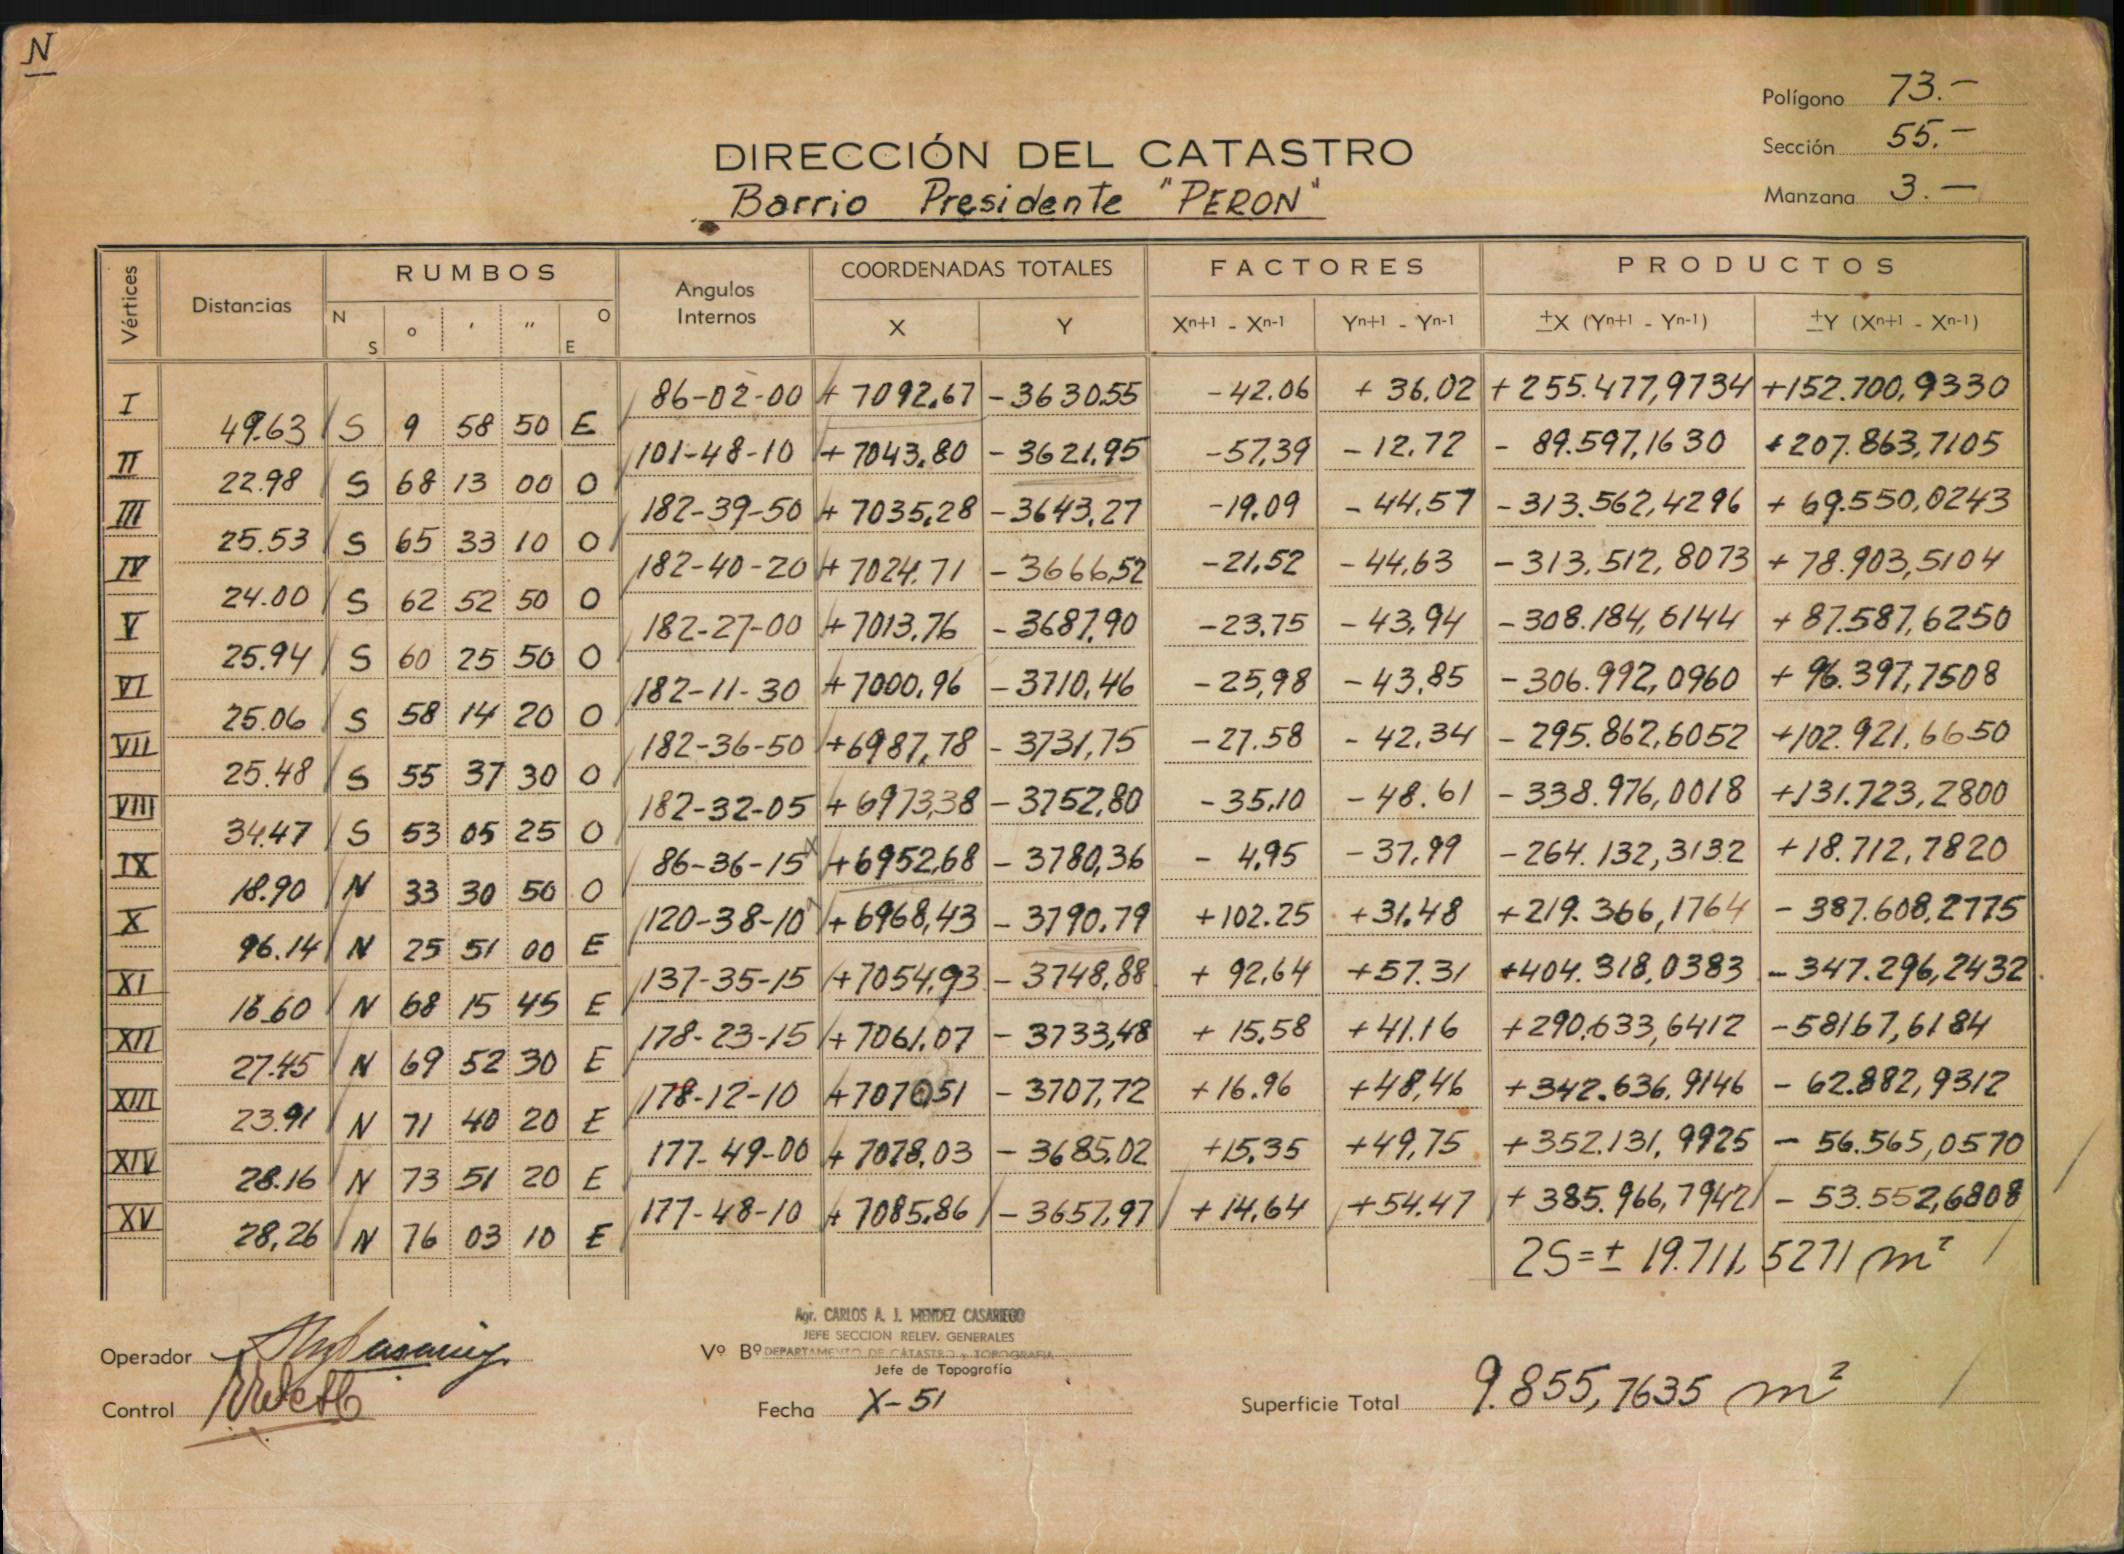 N
Polígono 73.-
Sección 55.-
Manzana 3.-
DIRECCIÓN DEL CATASTRO
Barrio Presidente "PERON"
Vértices Distancias RUMBOS Angulos Internos COORDENADAS TOTALES FACTORES PRODUCTOS
N S ° ' " O E X Y Xn+1 - Xn-1 Yn+1 - Yn-1 ±X (Yn+1 - Yn-1) ±Y (Xn+1 - Xn-1)
I 86-02-00 + 7092.67 -3630.55 -42.06 + 36.02 + 255.477,9734 +152.700,9330
49.63 S 9 58 50 E
II 101-48-10 + 7043.80 - 3621.95 -57,39 - 12.72 - 89.597,1630 +207.863,7105
22.98 S 68 13 00 O
III 182-39-50 + 7035,28 -3643,27 -19.09 - 44.57 -313.562,4296 + 69.550,0243
25.53 S 65 33 10 O
IV 182-40-20 + 7024.71 - 3666,52 -21,52 -44,63 -313.512,8073 + 78.903,5104
24.00 S 62 52 50 O
V 182-27-00 + 7013,76 - 3687,90 -23,75 -43,94 -308.184,6144 + 87.587,6250
25.94 S 60 25 50 O
VI 182-11-30 + 7000,96 - 3710,46 -25,98 -43,85 -306.992,0960 + 96.397,7508
25.06 S 58 14 20 O
VII 182-36-50 +6987,78 - 3731,75 -27.58 - 42,34 - 295.862,6052 +102.921,6650
25.48 S 55 37 30 O
VIII 182-32-05 + 6973,38 - 3752,80 -35,10 - 48.61 - 338.976,0018 +131.723,2800
34.47 S 53 05 25 O
IX 86-36-15 +6952,68 - 3780,36 - 4,95 -37,99 -264.132,3132 +18.712,7820
18.90 N 33 30 50 O
X 120-38-10 +6968,43 - 3790.79 +102.25 +31.48 +219.366,1764 - 387.608,2775
96.14 N 25 51 00 E
XI 137-35-15 +7054,93 - 3748,88 + 92,64 +57.31 +404.318,0383 - 347.296,2432
16.60 N 68 15 45 E
XII 178-23-15 +7061.07 - 3733,48 + 15,58 +41.16 +290.633,6412 -58167,6184
27.45 N 69 52 30 E
XIII 178-12-10 +707051 - 3707,72 +16.96 +48,46 +342.636,9146 - 62.882,9312
23.91 N 71 40 20 E
XIV 177-49-00 + 7078,03 - 3685.02 +15.35 +49,75 +352.131,9925 - 56.565,0570
28.16 N 73 51 20 E
XV 177-48-10 + 7085,86 - 3657,97 +14,64 +54.47 + 385.966,7942 - 53.552,6808
28,26 N 76 03 10 E
2S=± 19.711,5271 m²
Agr. CARLOS A. J. MENDEZ CASARIEGO
JEFE SECCION RELEV. GENERALES
Operador Vº Bº DEPARTAMENTO DE CATASTRO y TOPOGRAFIA
Jefe de Topografía
Control Fecha X-51 Superficie Total 9.855,7635 m²